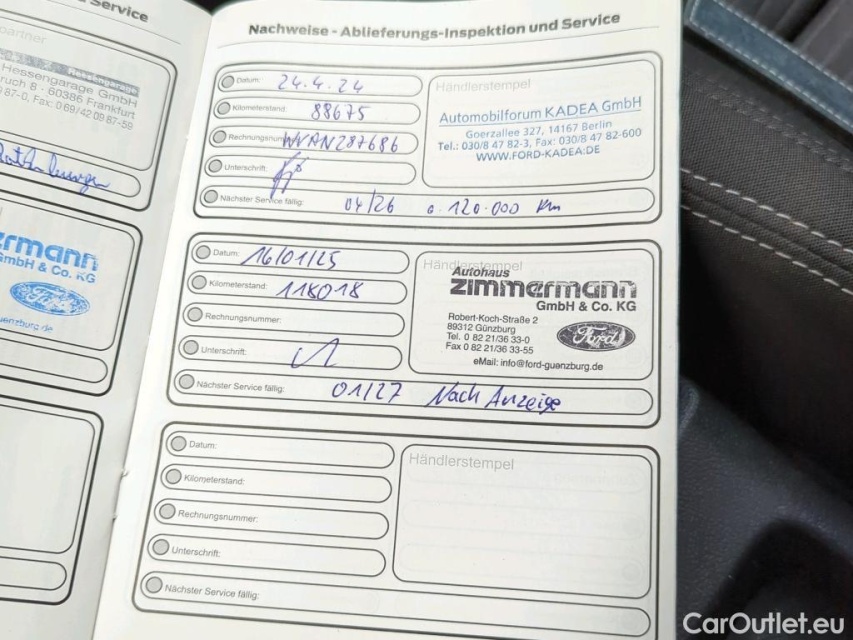 Service
partner
Hessengarage
Hessengarage GmbH
ruch 8 · 60386 Frankfurt
87-0, Fax: 0 69/42 09 87-59
zimmermann
GmbH & Co. KG
Ford
guenzburg.de
Nachweise - Ablieferungs-Inspektion und Service
Datum: 24.4.24
Kilometerstand: 88675
Rechnungsnummer: WVAN287686
Unterschrift:
Nächster Service fällig: 04/26 o. 120.000 km
Händlerstempel
Automobilforum KADEA GmbH
Goerzallee 327, 14167 Berlin
Tel.: 030/8 47 82-3, Fax: 030/8 47 82-600
WWW.FORD-KADEA.DE
Datum: 16/01/25
Kilometerstand: 118018
Rechnungsnummer:
Unterschrift:
Nächster Service fällig: 01/27 Nach Anzeige
Händlerstempel
Autohaus
zimmermann
GmbH & Co. KG
Robert-Koch-Straße 2
89312 Günzburg
Tel. 0 82 21/36 33-0
Fax 0 82 21/36 33-55
Ford
eMail: info@ford-guenzburg.de
Datum:
Kilometerstand:
Rechnungsnummer:
Unterschrift:
Nächster Service fällig:
Händlerstempel
CarOutlet.eu